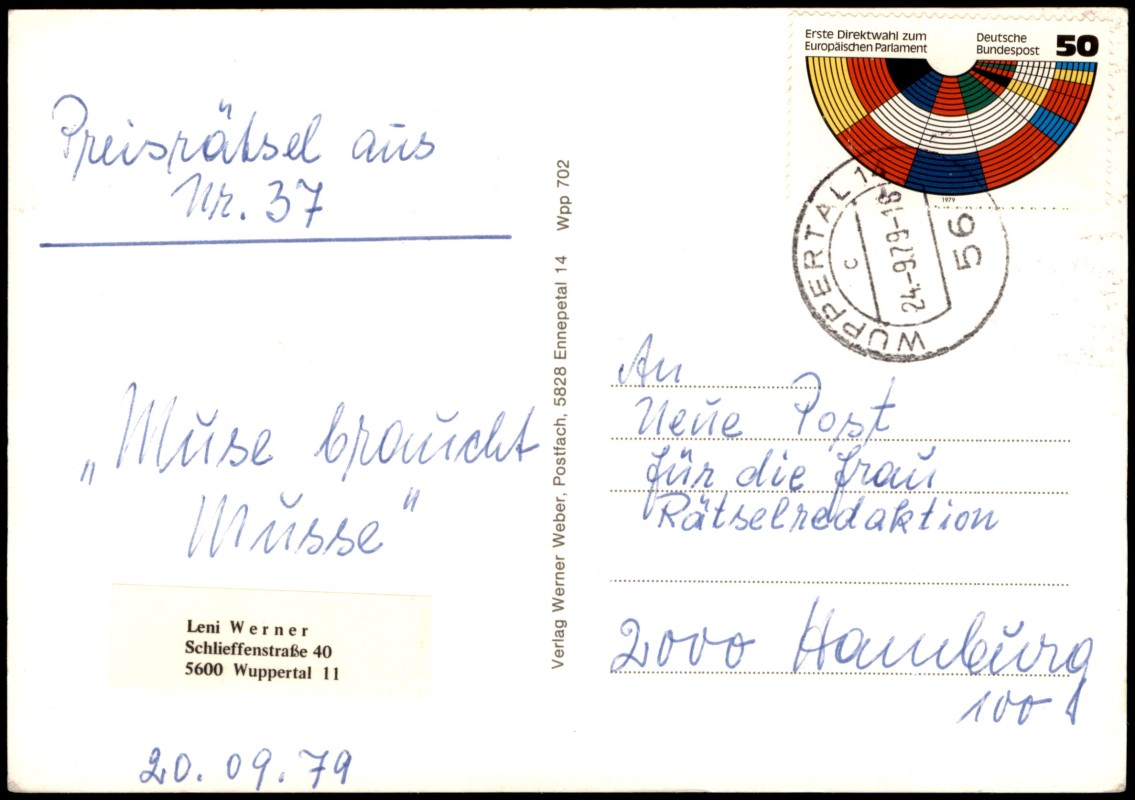 Preisrätsel aus
Nr. 37
„Muse braucht
Musse"
Leni Werner
Schlieffenstraße 40
5600 Wuppertal 11
20. 09. 79
Verlag Werner Weber, Postfach, 5828 Ennepetal 14 Wpp 702
Erste Direktwahl zum
Europäischen Parlament
Deutsche
Bundespost
50
1979
WUPPERTAL 1
24.-9.79-18
56
c
An
Neue Post
für die Frau
Rätselredaktion
2000 Hamburg
100